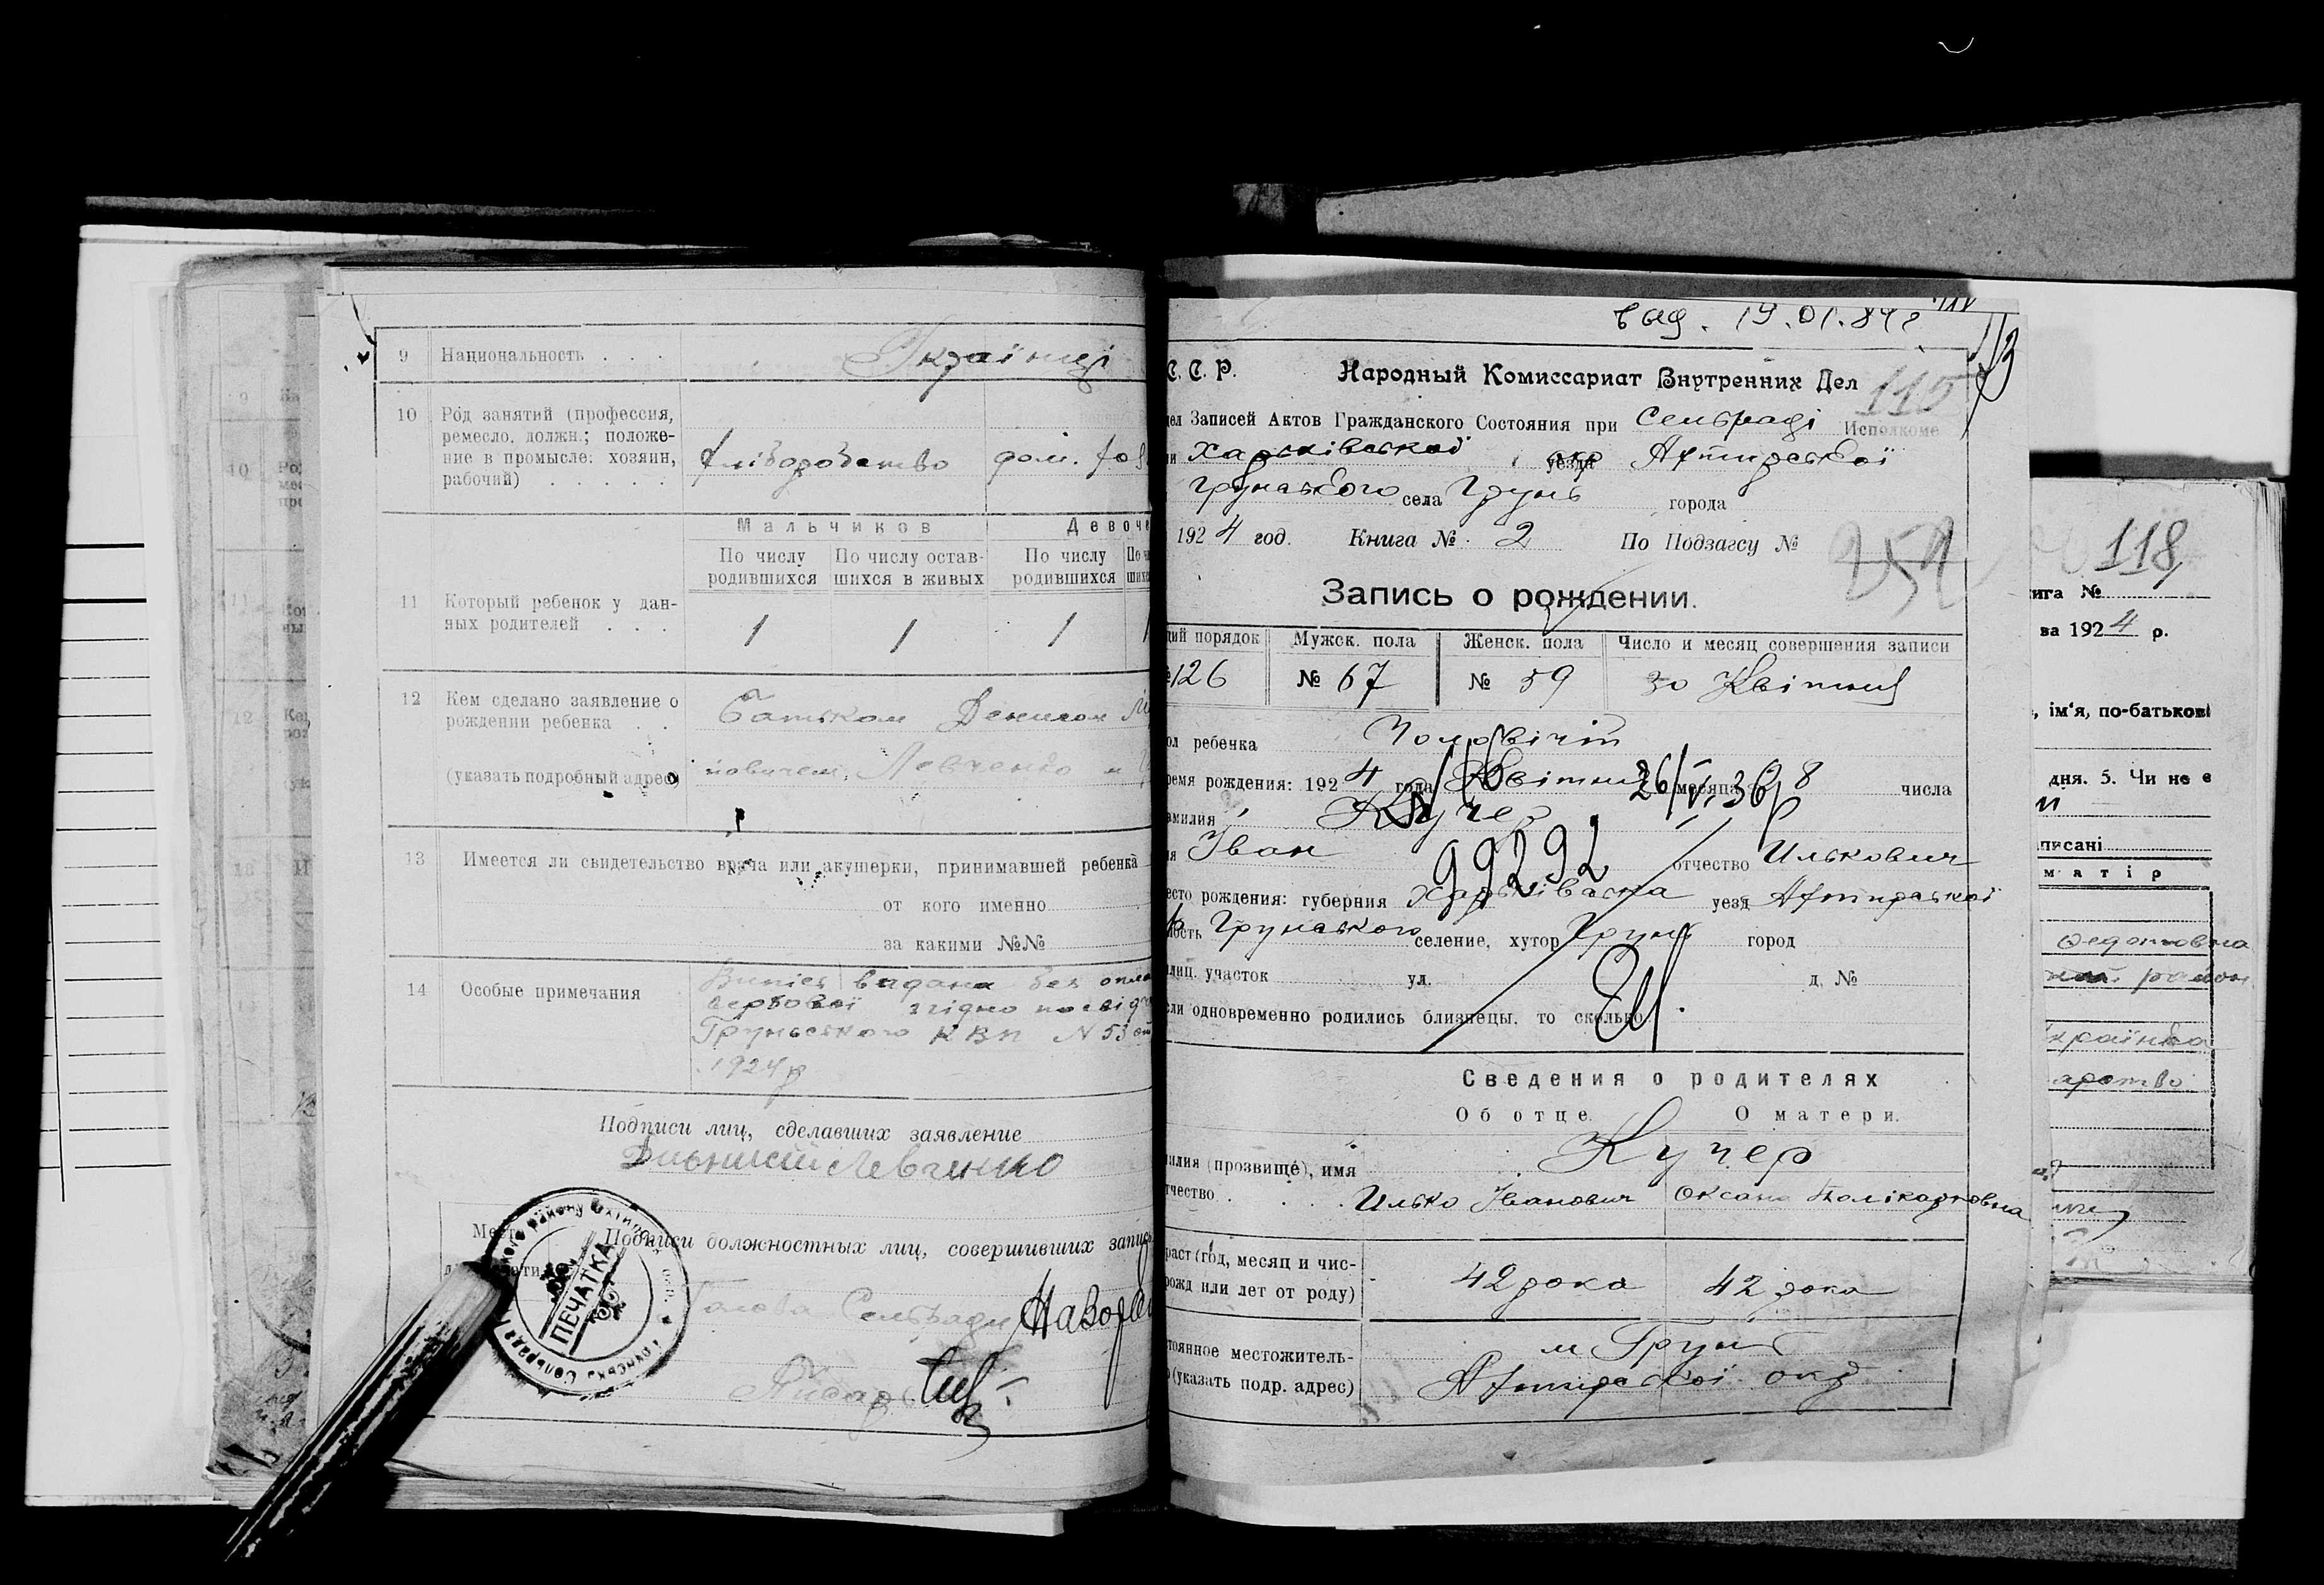 9 Национальность . . . Українці
10 Род занятий (профессия,
ремесло, должн.; положе-
ние в промысле: хозяин,
рабочий) . . . . .
хліборобство дом. гос
Мальчиков Девоче
По числу родившихся По числу остав- шихся в живых По числу родившихся
11 Который ребенок у дан-
ных родителей . . .
1 1 1
12 Кем сделано заявление о
рождении ребенка . .
Батьком Денисом
(указать подробный адрес)
новичем, Левченко
13 Имеется ли свидетельство врача или акушерки, принимавшей ребенка
от кого именно
за какими №№
14 Особые примечания
Випись видана без опла
гербової згідно посвідч
Груньського КВП N 53
1924 р
Подписи лиц, сделавших заявление
Левченко
Подписи должностных лиц, совершивших запись
ПЕЧАТКА
Голова Сельради
вид. 19.01.84
113
С. С. Р. Народный Комиссариат Внутренних Дел
115
дел Записей Актов Гражданского Состояния при Сельраді Исполкоме
Харьківської уезда окр Ахтирської
Груньского села Грунь города
1924 год. Книга № 2 По Подзагсу №
252
Запись о рождении.
щий порядок Мужск. пола Женск. пола Число и месяц совершения записи
№126 № 67 № 59 30 Квітня
ол ребенка Чоловічий
ремя рождения: 1924 года Квітня месяца 8 числа
26/V 36р
амилия Кучер
я Іван отчество Илькович
99292
есто рождения: губерния Харьківська уезд Ахтирської
ность Груньского селение, хутор Грунь город
лиц. участок ул. д. №
сли одновременно родились близнецы, то сколько
Сведения о родителях
Об отце. О матери.
милия (прозвище), имя Кучер
тчество . . . . Илько Іванович Оксана Полікарповна
раст (год, месяц и чис-
рожд или лет от роду)
42 рока 42 рока
тоянное местожитель-
о (указать подр. адрес)
м Грунь
Ахтирської окр
118
ига № 
за 1924 р.
, ім'я, по-батькові
дня. 5. Чи не є
писані
матір
Федотовна
район
країнка